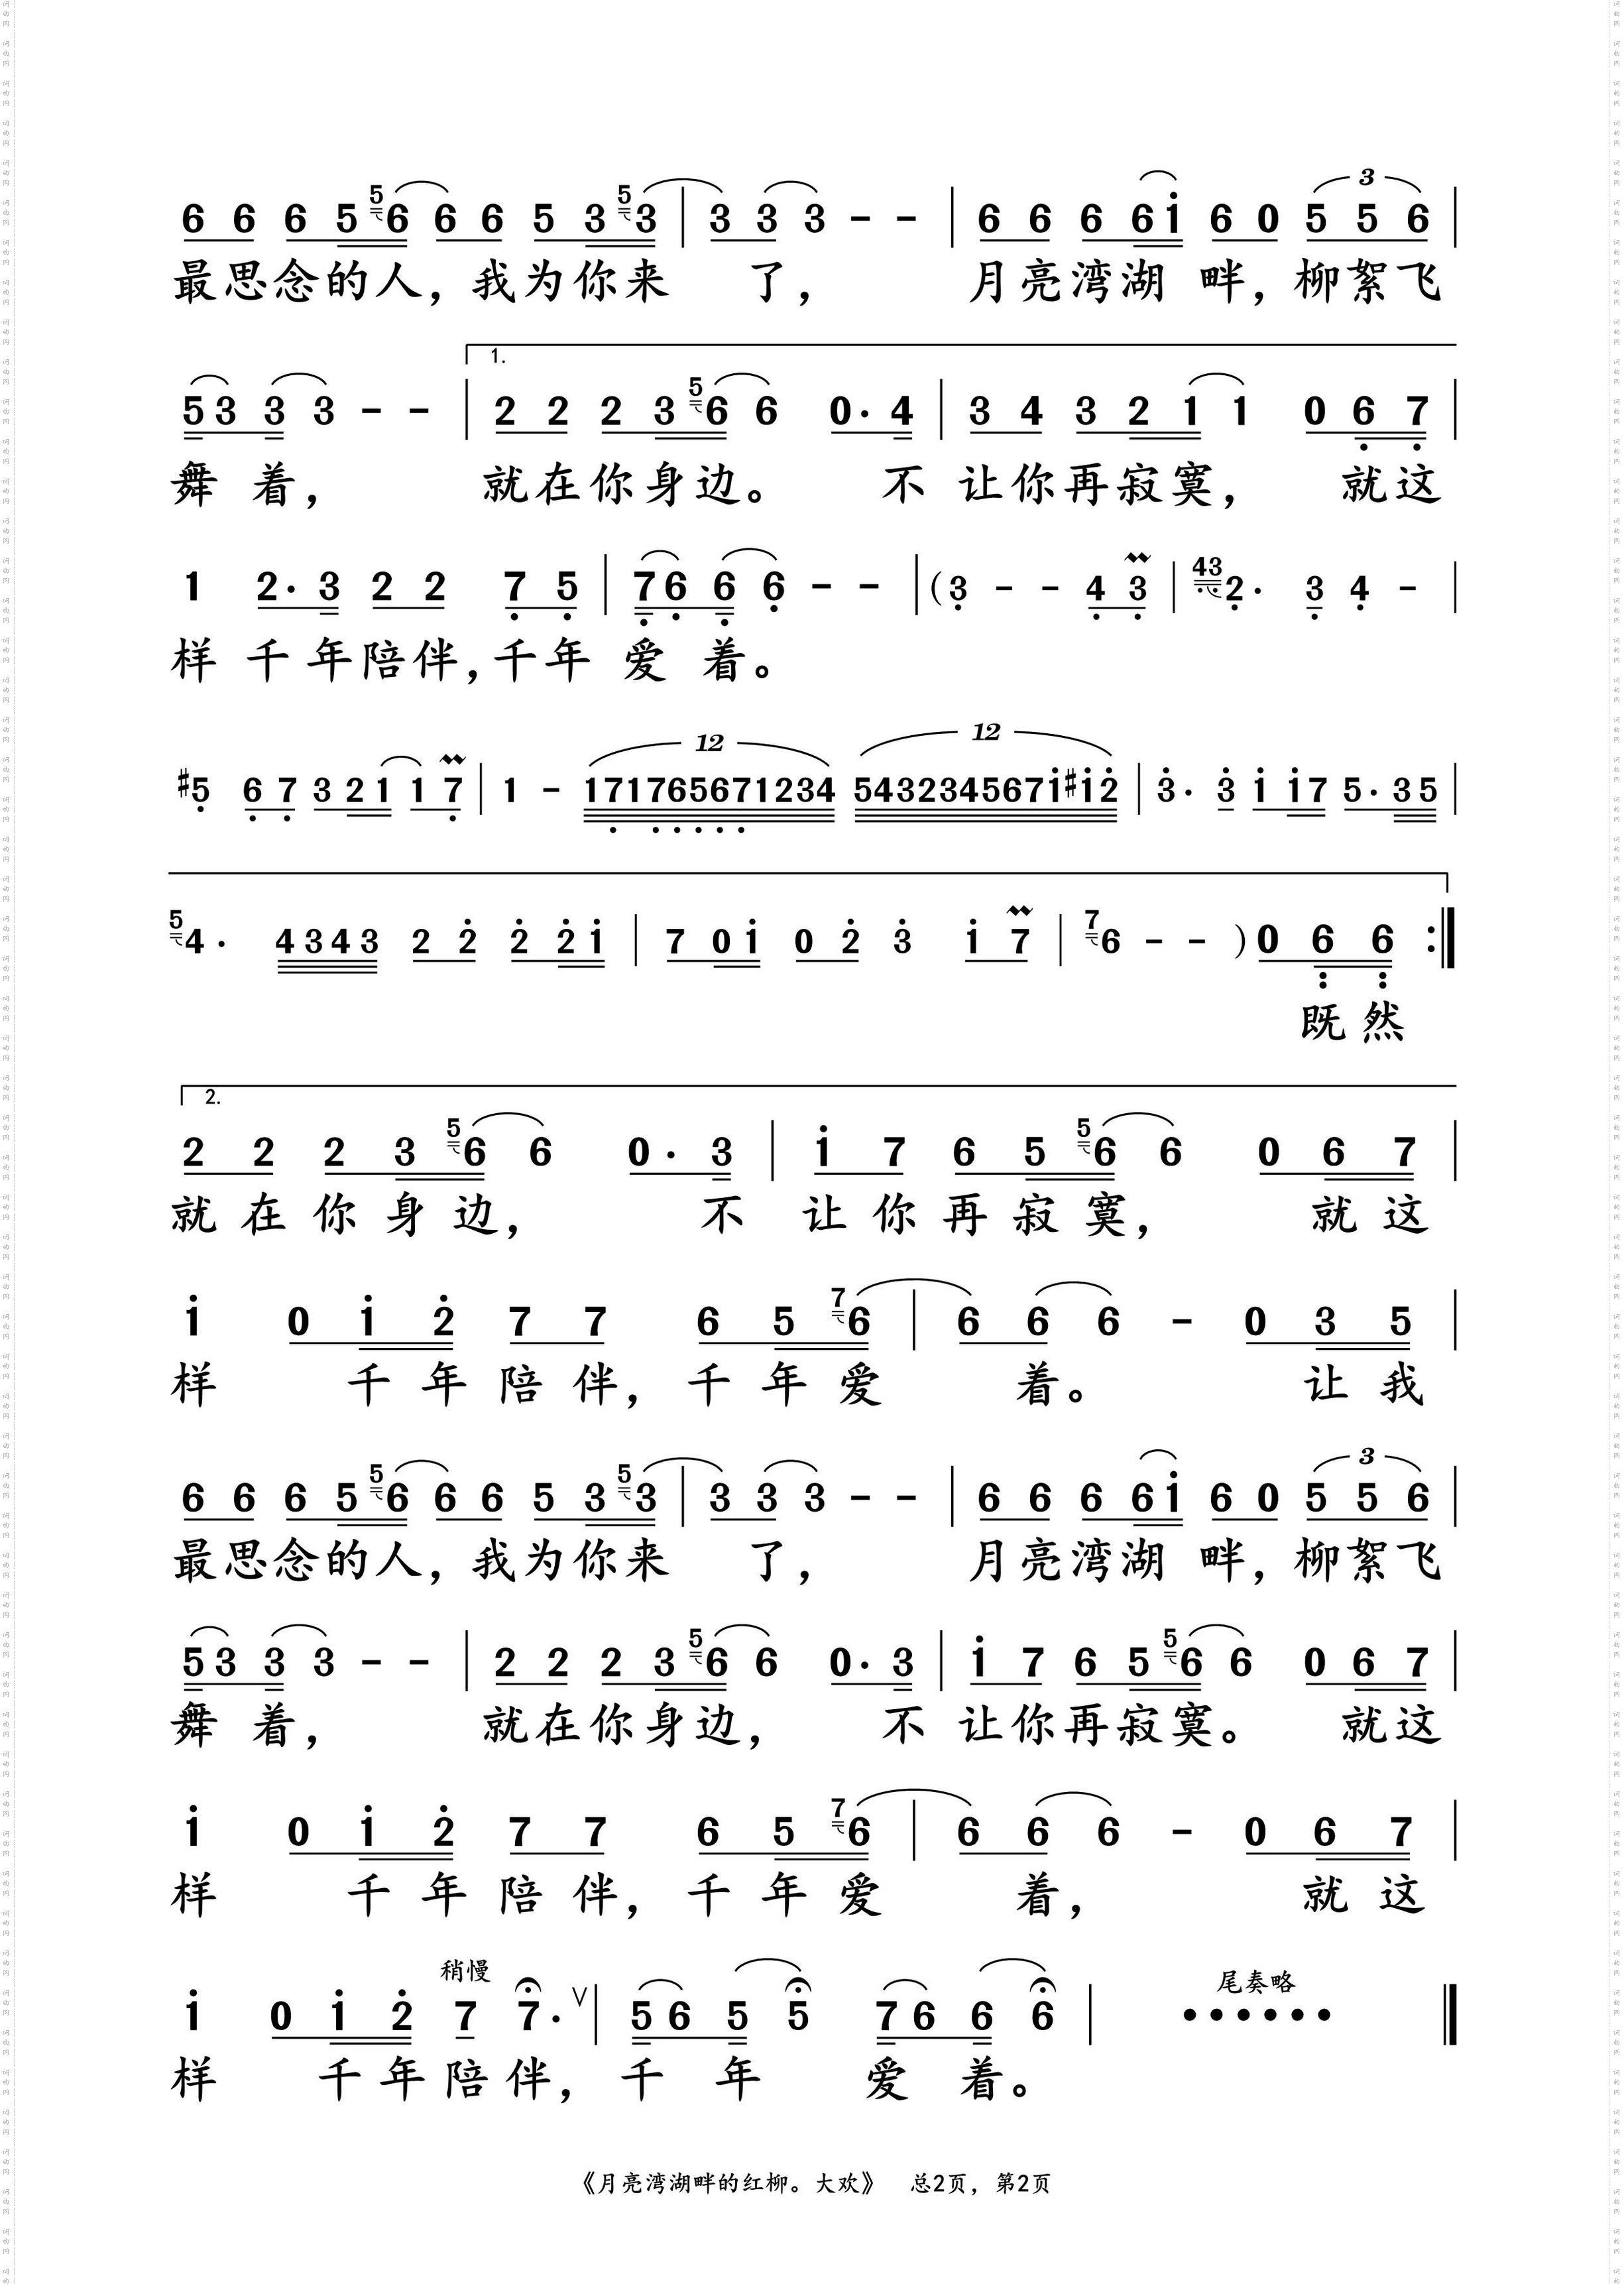 6 6 6 5 5 6 6 6 5 3 5 3 | 3 3 3 - - | 6 6 6 6 i 6 0 3 5 5 6 |
最思念的人，我为你来 了， 月亮湾湖 畔，柳絮飞
1.
5 3 3 3 - - | 2 2 2 3 5 6 6 0· 4 | 3 4 3 2 1 1 0 6 7 |
舞 着， 就在你身边。 不 让你再寂寞， 就这
1 2· 3 2 2 7 5 | 7 6 6 6 - - | (3 - - 4 3 | 43 2· 3 4 - |
样 千年陪伴，千年 爱 着。
12 12
#5 6 7 3 2 1 1 7 | 1 - 171765671234 5432345671#12 | 3· 3 i i 7 5· 3 5 |
5 4· 4 3 4 3 2 2 2 2 i | 7 0 i 0 2 3 i 7 | 7 6 - - ) 0 6 6 :|
既然
2.
2 2 2 3 5 6 6 0· 3 | i 7 6 5 5 6 6 0 6 7 |
就在你身边， 不 让你再寂寞， 就这
i 0 i 2 7 7 6 5 7 6 | 6 6 6 - 0 3 5 |
样 千年陪伴，千年爱 着。 让我
6 6 6 5 5 6 6 6 5 3 5 3 | 3 3 3 - - | 6 6 6 6 i 6 0 3 5 5 6 |
最思念的人，我为你来 了， 月亮湾湖 畔，柳絮飞
5 3 3 3 - - | 2 2 2 3 5 6 6 0· 3 | i 7 6 5 5 6 6 0 6 7 |
舞 着， 就在你身边， 不 让你再寂寞。 就这
i 0 i 2 7 7 6 5 7 6 | 6 6 6 - 0 6 7 |
样 千年陪伴，千年爱 着， 就这
稍慢 尾奏略
i 0 i 2 7 7· V | 5 6 5 5 7 6 6 6 | ······ ‖
样 千年陪伴，千 年 爱 着。
《月亮湾湖畔的红柳。大欢》 总2页，第2页